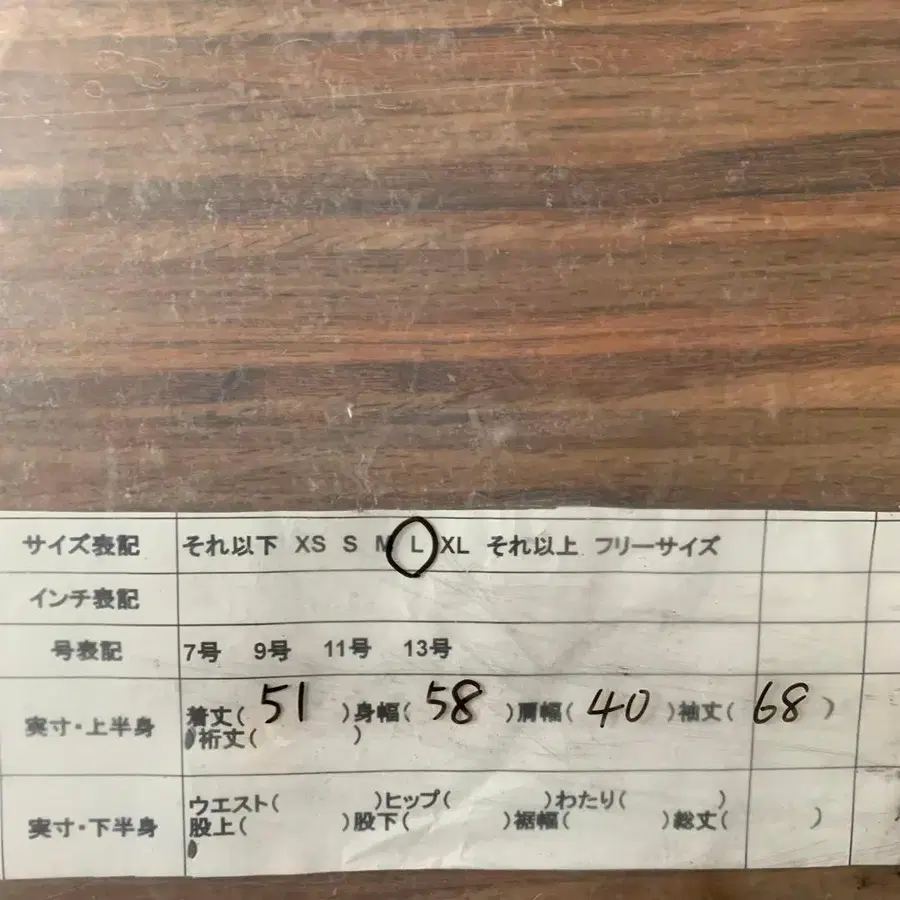 サイズ表記 それ以下 XS S M L XL それ以上 フリーサイズ
インチ表記
号表記 7号 9号 11号 13号
実寸・上半身 着丈( 51 )身幅( 58 )肩幅( 40 )袖丈( 68 )
裄丈( )
実寸・下半身 ウエスト( )ヒップ( )わたり( )
股上( )股下( )裾幅( )総丈( )